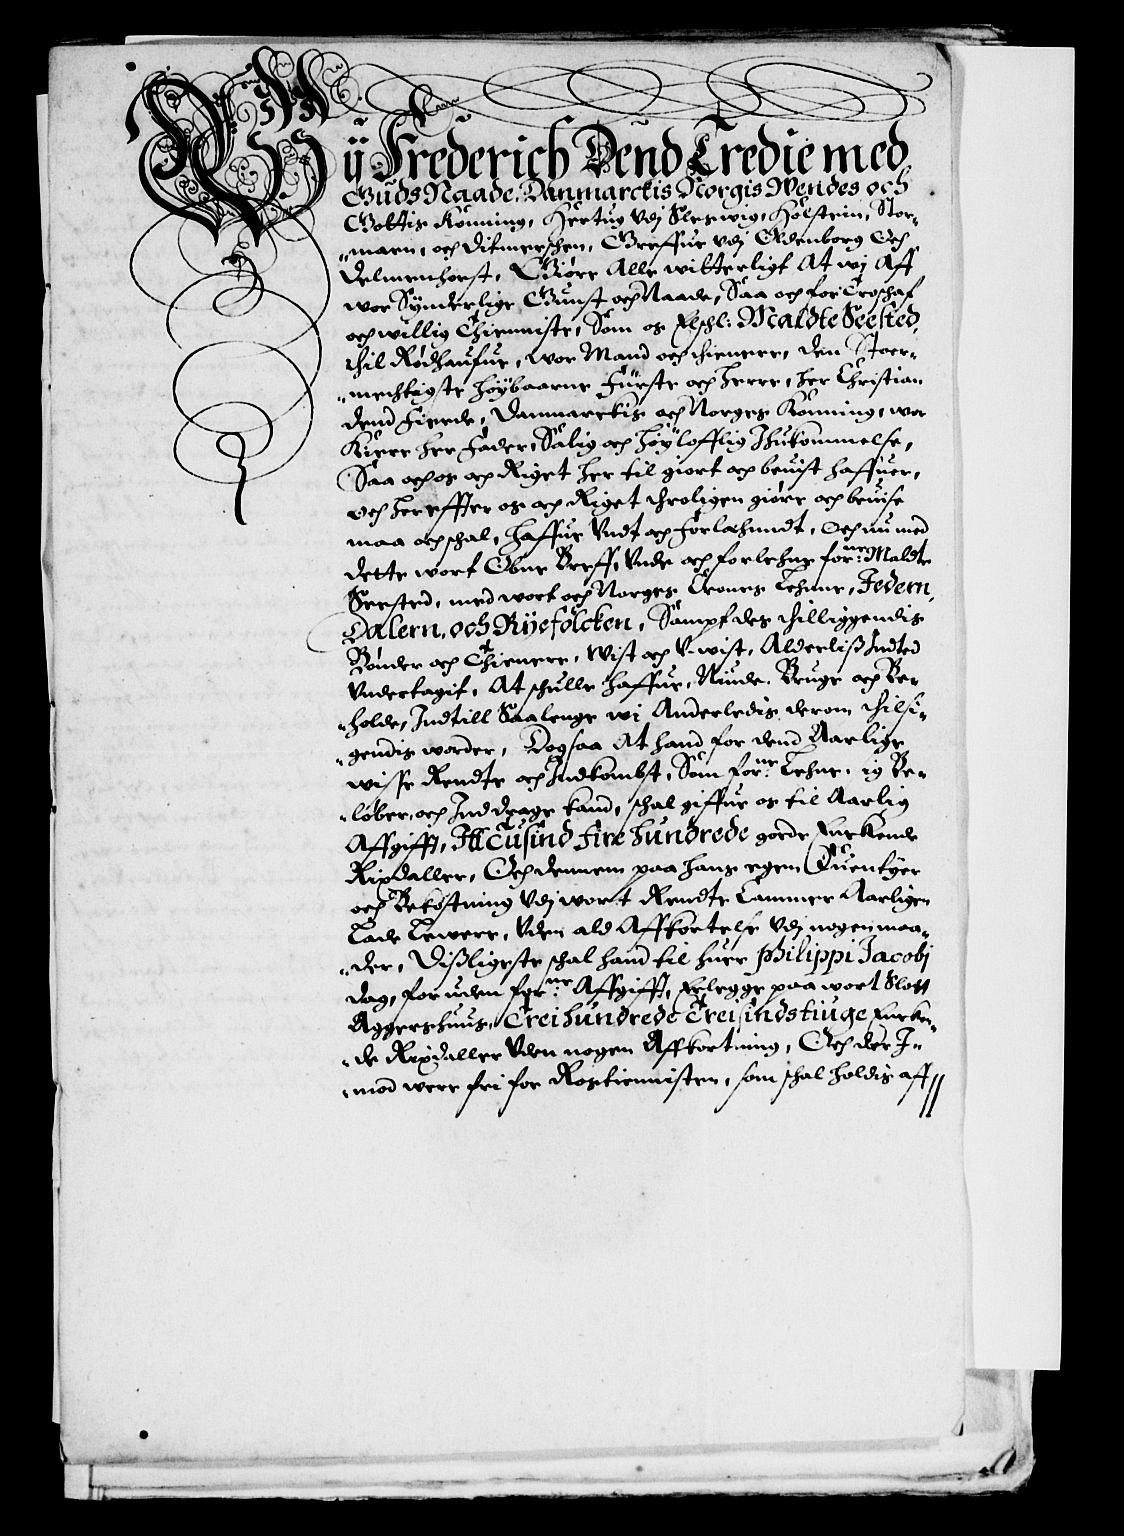 Wij Frederich Dend Tredie med
Guds Naade, Danmarckis Norgis Wendes och
Gottis Konning, Hertug vdj Sleswig, Holstein, Stor-
-marn, och Ditmerschen, Greffue vdj Oldenborg Och
Delmenhorst, Giøre Alle witterligt At wj Aff
wor Synderlige Gunst och Naade, Saa och for Troschaf
och willig Thienniste, Som os Elschl: Maldte Seested,
thil Rødhaufue, wor Mand och thienere, den Stoer-
-mechtigste Høybaarne Fürste och Herre, Her Christian
dend Fierde, Danmarckis och Norges Konning, wor
Kiere Her Fader, Salig och Høylofflig Ihukommelse,
Saa och os och Riget her til giort och beuist haffuer,
och hereffter os och Riget throligen giøre och beuise
maa och schal, Haffue Vndt och Forlehnndt, Och nu med
dette wort Obne Breff, Vnde och forlehne forne: Maldte
Seested, med wort och Norges Crones Lehnne, Federn,
Dalern, och Ryefolcken, Sampt des thilliggendis
Bønder och Thienere, Wist och V-wist, Alderliß Indted
Vndertagit, At schulle haffue, Niude, Bruge och Be-
-holde, Indtill Saalenge wi Anderledis derom thilsi-
-gendis worder, Dog saa At hand for dend Aarlige
wisse Rendte och Indkombst, Som forne: Lehne, ig Be-
-løber, och Inddrage kand, schal giffue os til Aarlig
Affgifft, III Tusind Fire hundrede gorde Enckende
Rixdaller, Och dennem paa hans egen Euentyer
och Bekostning vdj wort Rendte Cammer Aarligen
Lade Lewere, Vden ald Affkortelse vdj nogen maa-
-der, Dißligeste schal hand til huer Philippi Jacobj
dag, foruden forne: Affgifft, Erlegge paa wort Slott
Aggershuus, Trei hundrede Treisindstiuge Encken-
-de Rixdaller Vden nogen Affkortning, Och der I-
-mod were fri for Rostiennisten, som schal holdis aff